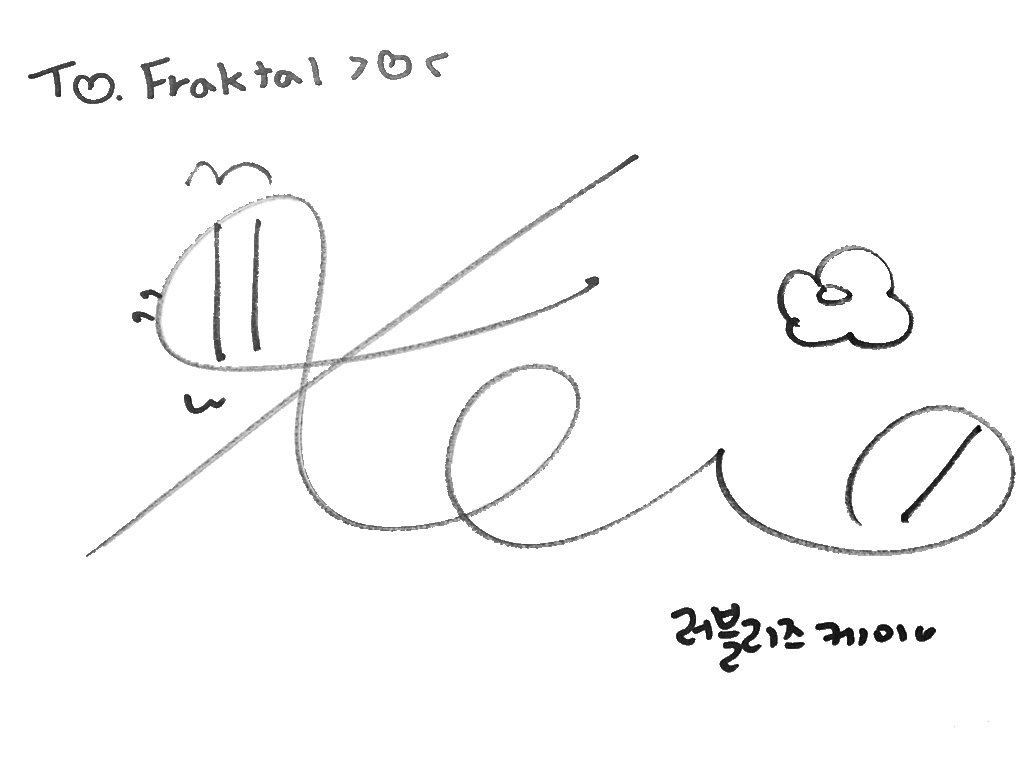 To. Fraktal >o<
러블리즈 케이